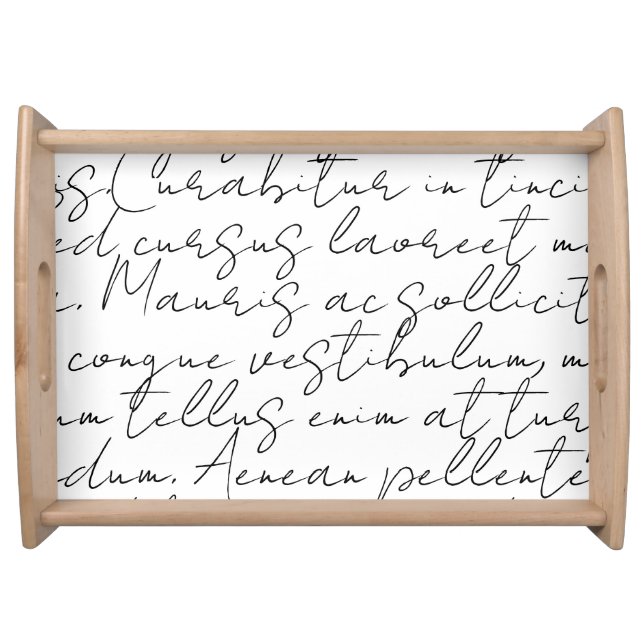 is. Curabitur in tinci
ed cursus laoreet m
. Mauris ac sollicit
congue vestibulum, m
um tellus enim at tur
dum. Aenean pellente